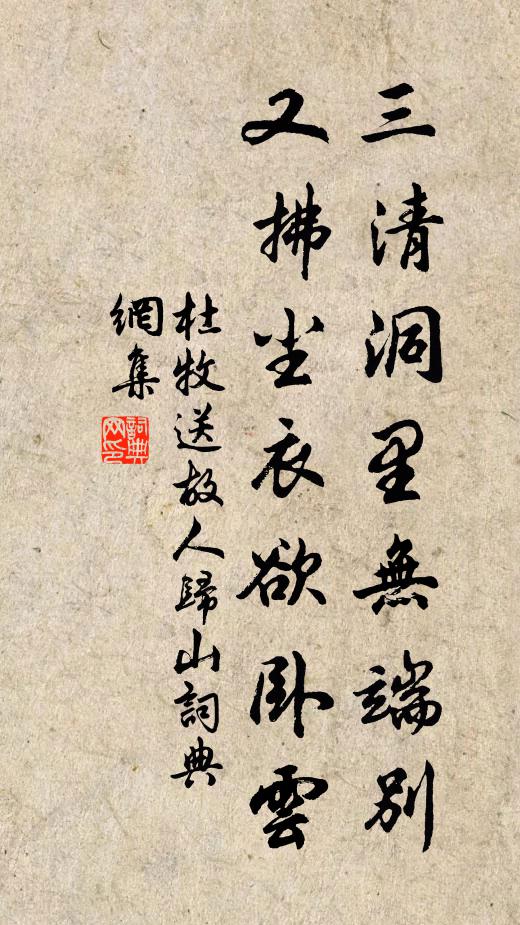 三清洞里無端別
又拂塵衣欲卧雲
杜牧送故人歸山詞典
網集
詞典
网印